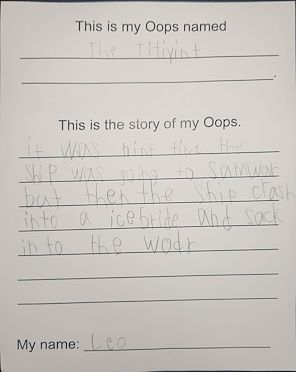 This is my Oops named
The Titiyint
This is the story of my Oops.
it was hint timt the
ship was going to samwar
but then the ship crash
into a icebride and sack
in to the wodr
My name: Leo